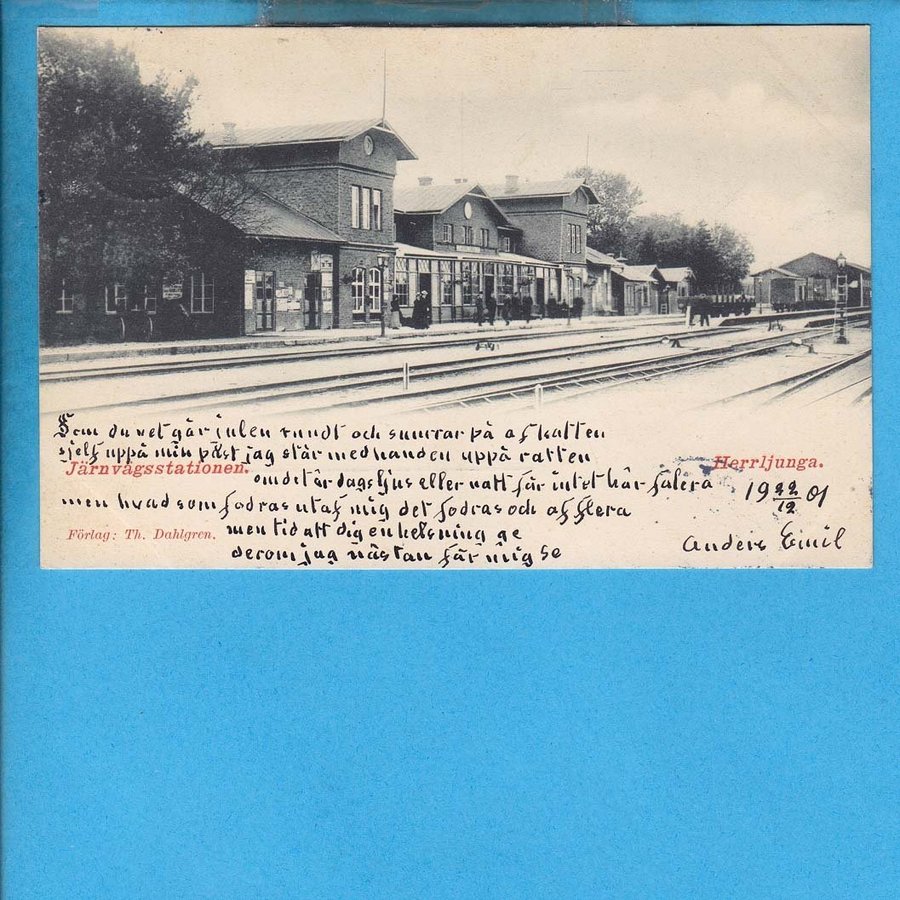 Som du vet går julen rundt och snurrar på af katten
sjelf uppå min påst jag står med handen uppå ratten
Järnvägsstationen. Herrljunga.
om det är dagsljus eller natt får intet här falera
19 22/12 01
men hvad som fodras utaf mig det fodras och af flera
Förlag: Th. Dahlgren.
men tid att dig en helsning ge
Anders Emil
derom jag nästan får mig se